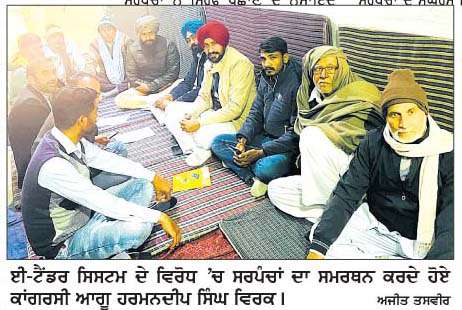 ਈ-ਟੈਂਡਰ ਸਿਸਟਮ ਦੇ ਵਿਰੋਧ 'ਚ ਸਰਪੰਚਾਂ ਦਾ ਸਮਰਥਨ ਕਰਦੇ ਹੋਏ
ਕਾਂਗਰਸੀ ਆਗੂ ਹਰਮਨਦੀਪ ਸਿੰਘ ਵਿਰਕ।
ਅਜੀਤ ਤਸਵੀਰ